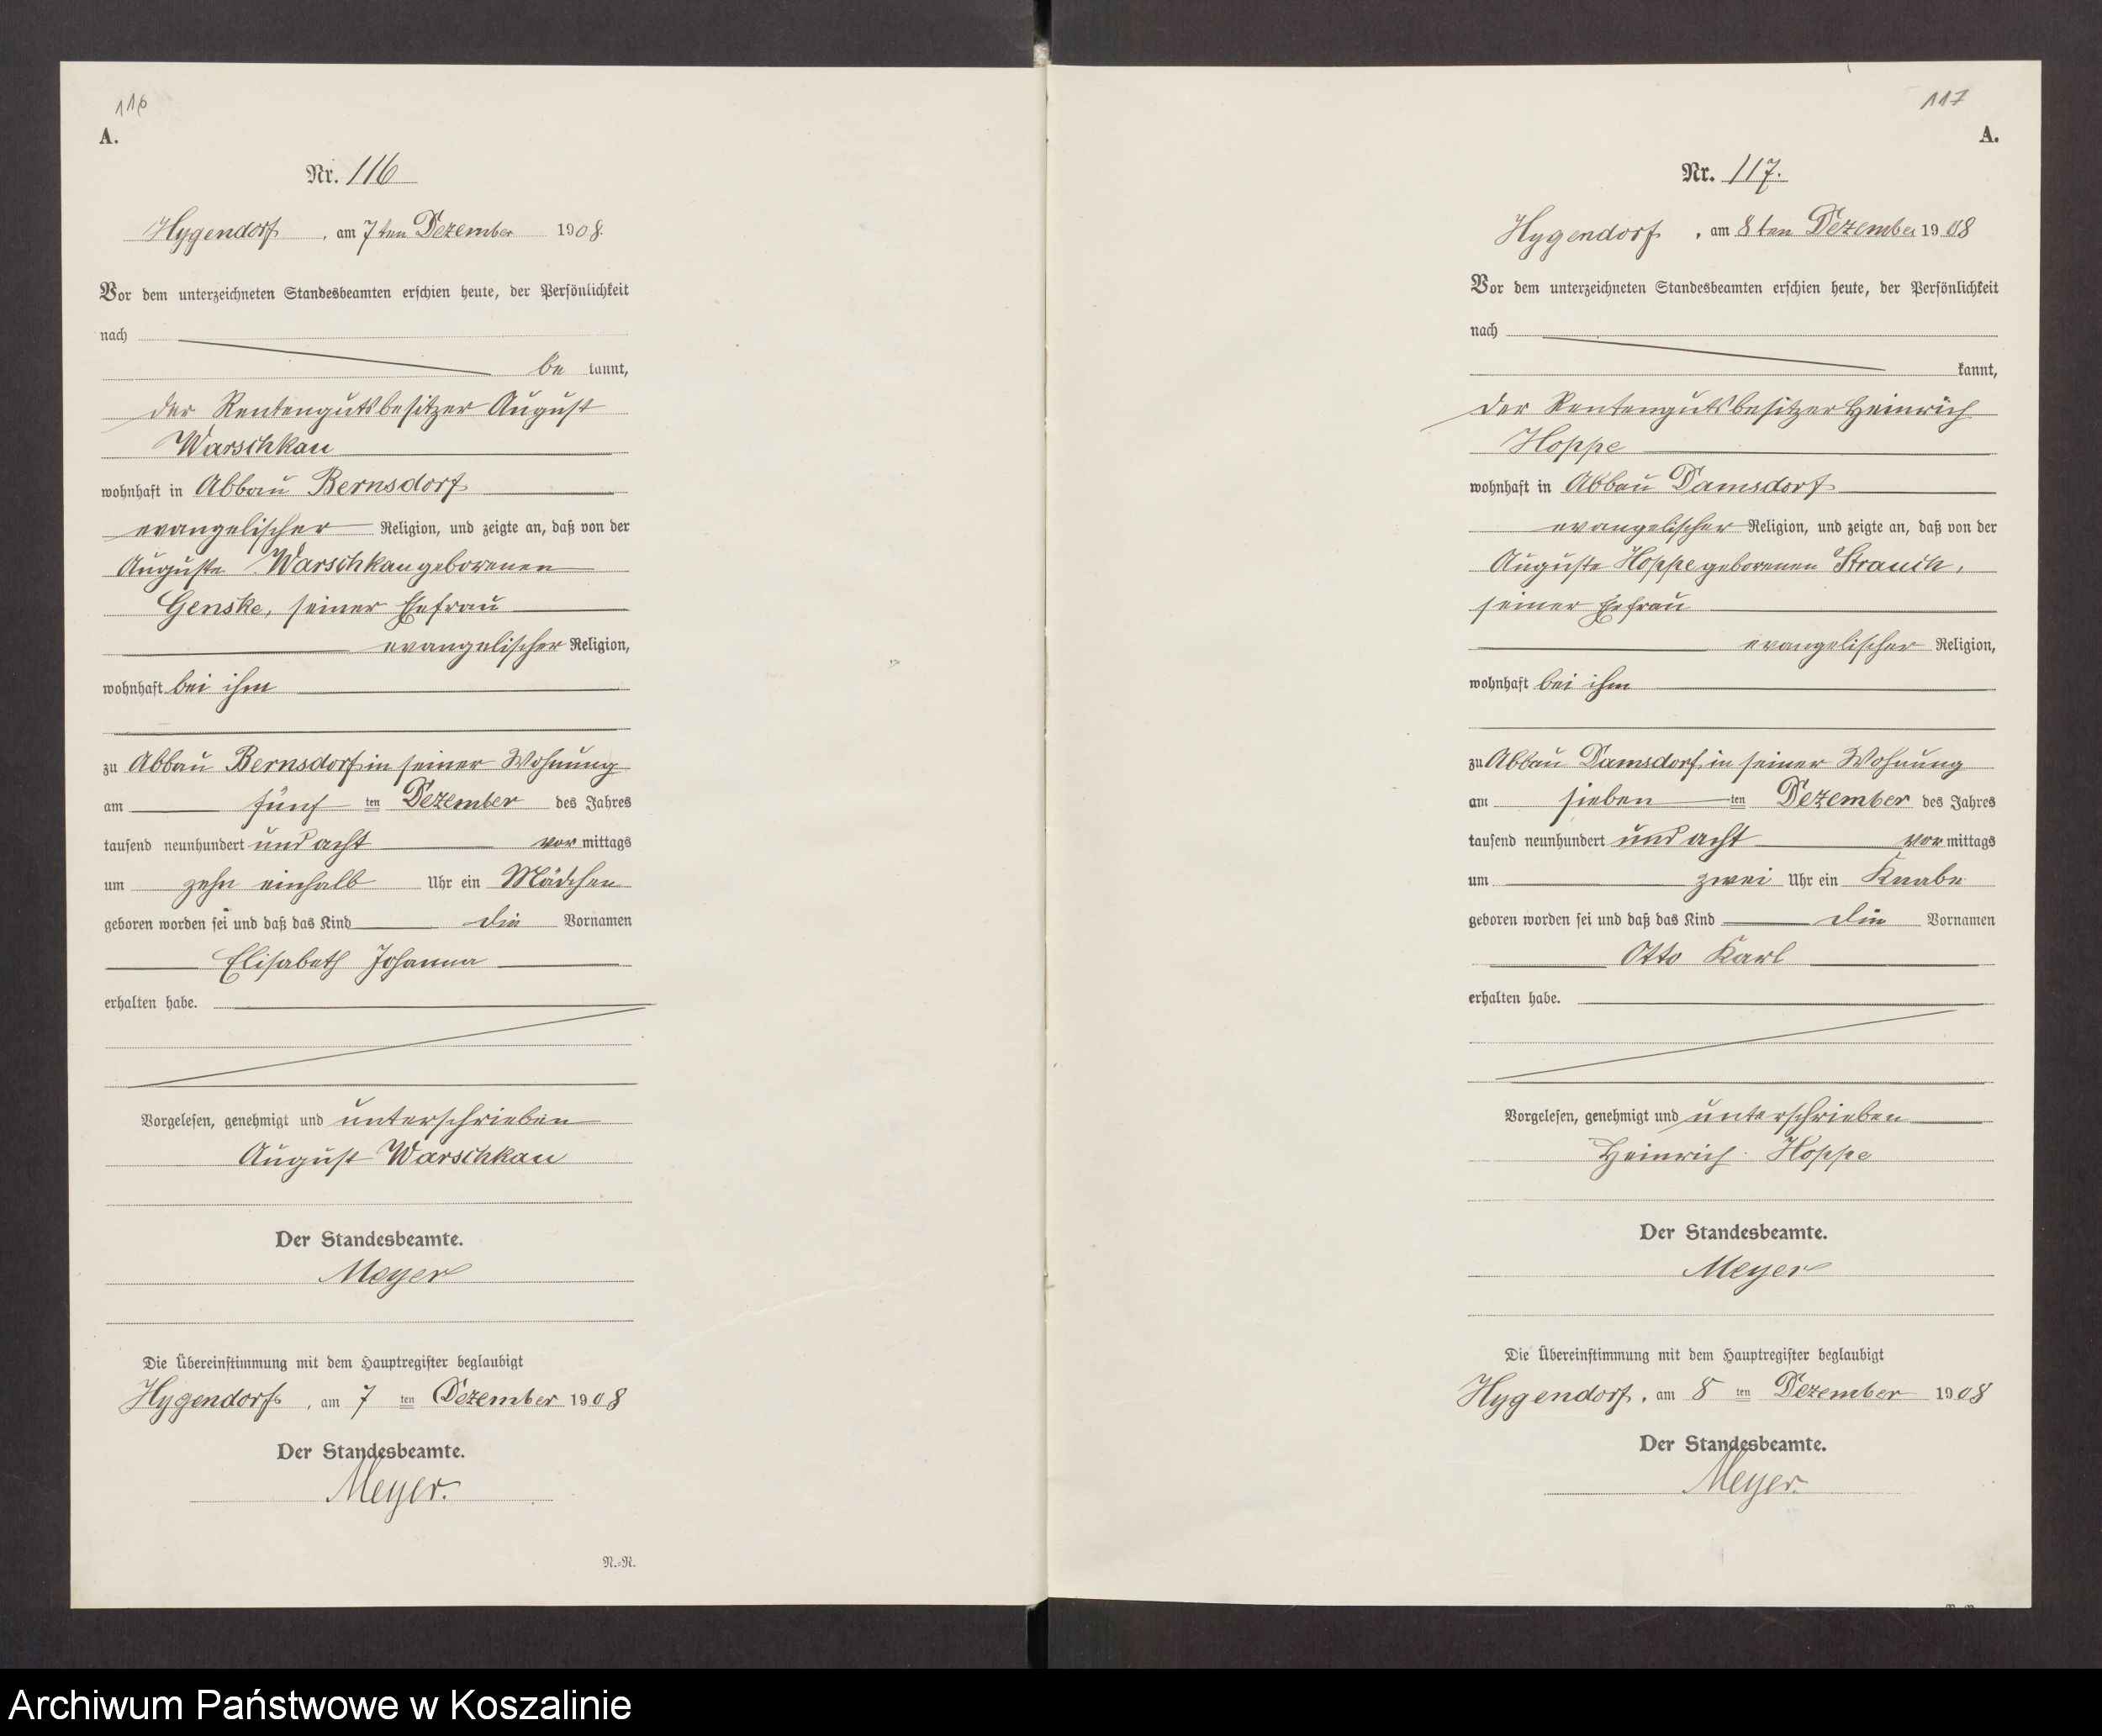 116
A.
Nr. 116
Hygendorf, am 7ten Dezember 1908.
Vor dem unterzeichneten Standesbeamten erschien heute, der Persönlichkeit
nach
be kannt,
der Rentengutsbesitzer August
Warschkau
wohnhaft in Abbau Bernsdorf
evangelischer Religion, und zeigte an, daß von der
Auguste Warschkau geborenen
Genske, seiner Ehefrau
evangelischer Religion,
wohnhaft bei ihm
zu Abbau Bernsdorf in seiner Wohnung
am fünf ten Dezember des Jahres
tausend neunhundert und acht vor mittags
um zehn einhalb Uhr ein Mädchen
geboren worden sei und daß das Kind die Vornamen
Elisabeth Johanna
erhalten habe.
Vorgelesen, genehmigt und unterschrieben
August Warschkau
Der Standesbeamte.
Meyer
Die Übereinstimmung mit dem Hauptregister beglaubigt
Hygendorf, am 7 ten Dezember 1908
Der Standesbeamte.
Meyer.
N.-R.
117
A.
Nr. 117.
Hygendorf, am 8ten Dezember 1908
Vor dem unterzeichneten Standesbeamten erschien heute, der Persönlichkeit
nach
kannt,
der Rentengutsbesitzer Heinrich
Hoppe
wohnhaft in Abbau Damsdorf
evangelischer Religion, und zeigte an, daß von der
Auguste Hoppe geborenen Strauch,
seiner Ehefrau
evangelischer Religion,
wohnhaft bei ihm
zu Abbau Damsdorf, in seiner Wohnung
am sieben ten Dezember des Jahres
tausend neunhundert und acht vor mittags
um zwei Uhr ein Knabe
geboren worden sei und daß das Kind die Vornamen
Otto Karl
erhalten habe.
Vorgelesen, genehmigt und unterschrieben
Heinrich Hoppe
Der Standesbeamte.
Meyer
Die Übereinstimmung mit dem Hauptregister beglaubigt
Hygendorf, am 8 ten Dezember 1908
Der Standesbeamte.
Meyer.
Archiwum Państwowe w Koszalinie